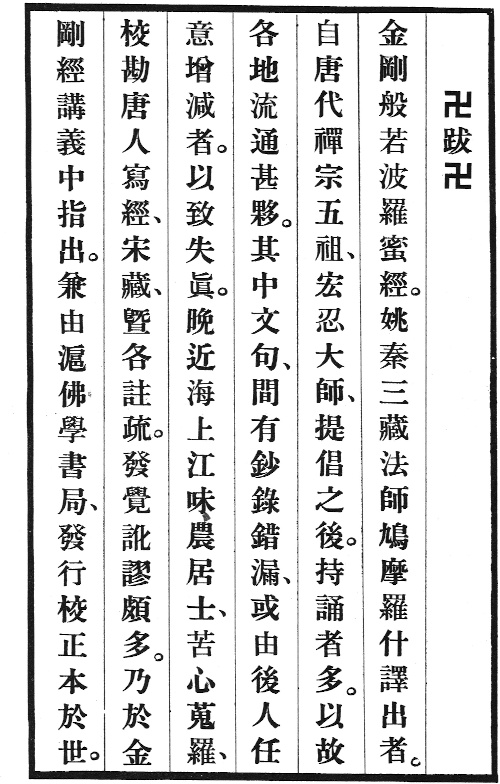 卍跋卍
金剛般若波羅蜜經。姚秦三藏法師鳩摩羅什譯出者。
自唐代禪宗五祖、宏忍大師、提倡之後。持誦者多。以故
各地流通甚夥。其中文句、間有鈔錄錯漏、或由後人任
意增減者。以致失眞。晚近海上江味農居士、苦心蒐羅、
校勘唐人寫經、宋藏、曁各註疏。發覺訛謬頗多。乃於金
剛經講義中指出。兼由滬佛學書局、發行校正本於世。